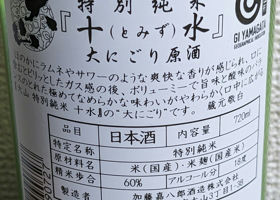 『特別純米
十(とみず)水』
大にごり原酒
GI YAMAGATA
ほのかにラムネやサワーのような爽快な香りが感じられ、口に
ガス感の後、ボリューミーで旨味と酸味のバラ
とれた極めてなめらかな味わいがやわらかく口中に広が
特別純米 十水』の"大にごり"です。 蔵元敬白
日本酒
内容量 720ml
特定名称 特別純米
原材料名 米(国産)・米麹(国産米)
精米歩合 60% アルコール分 18度
製造者 加藤嘉八郎酒造株式会社
3丁目1-38